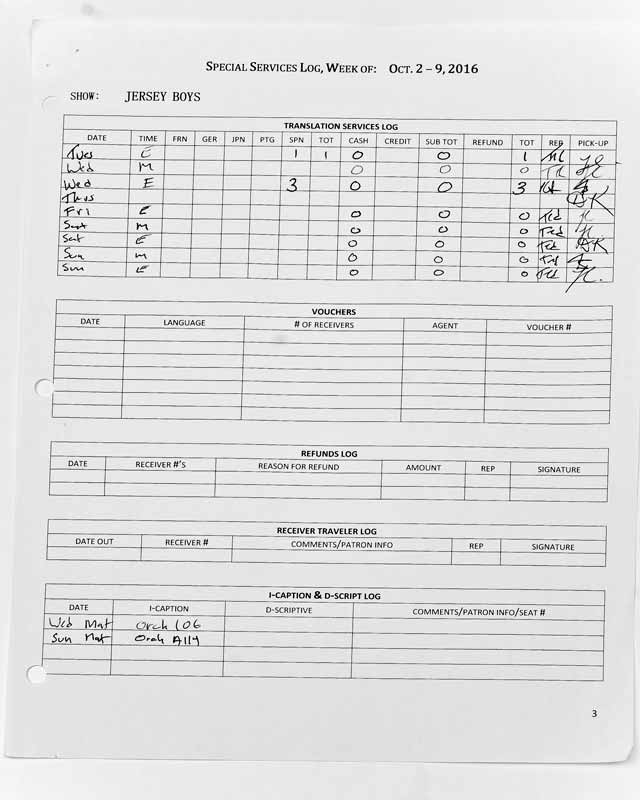 SPECIAL SERVICES LOG, WEEK OF: OCT. 2 – 9, 2016
SHOW: JERSEY BOYS
TRANSLATION SERVICES LOG
DATE TIME FRN GER JPN PTG SPN TOT CASH CREDIT SUB TOT REFUND TOT REP PICK-UP
Tues E 1 1 0 0 1
Wed M 0 0 0
Wed E 3 0 0 3
Thus
Fri E 0 0 0 Ted
Sat M 0 0 0 Ted
Sat E 0 0 0 Ted
Sun M 0 0 0 Ted
Sun E 0 0 0 Ted
VOUCHERS
DATE LANGUAGE # OF RECEIVERS AGENT VOUCHER #
REFUNDS LOG
DATE RECEIVER #'S REASON FOR REFUND AMOUNT REP SIGNATURE
RECEIVER TRAVELER LOG
DATE OUT RECEIVER # COMMENTS/PATRON INFO REP SIGNATURE
I-CAPTION & D-SCRIPT LOG
DATE I-CAPTION D-SCRIPTIVE COMMENTS/PATRON INFO/SEAT #
Wed Mat Orch L06
Sun Mat Orch A114
3